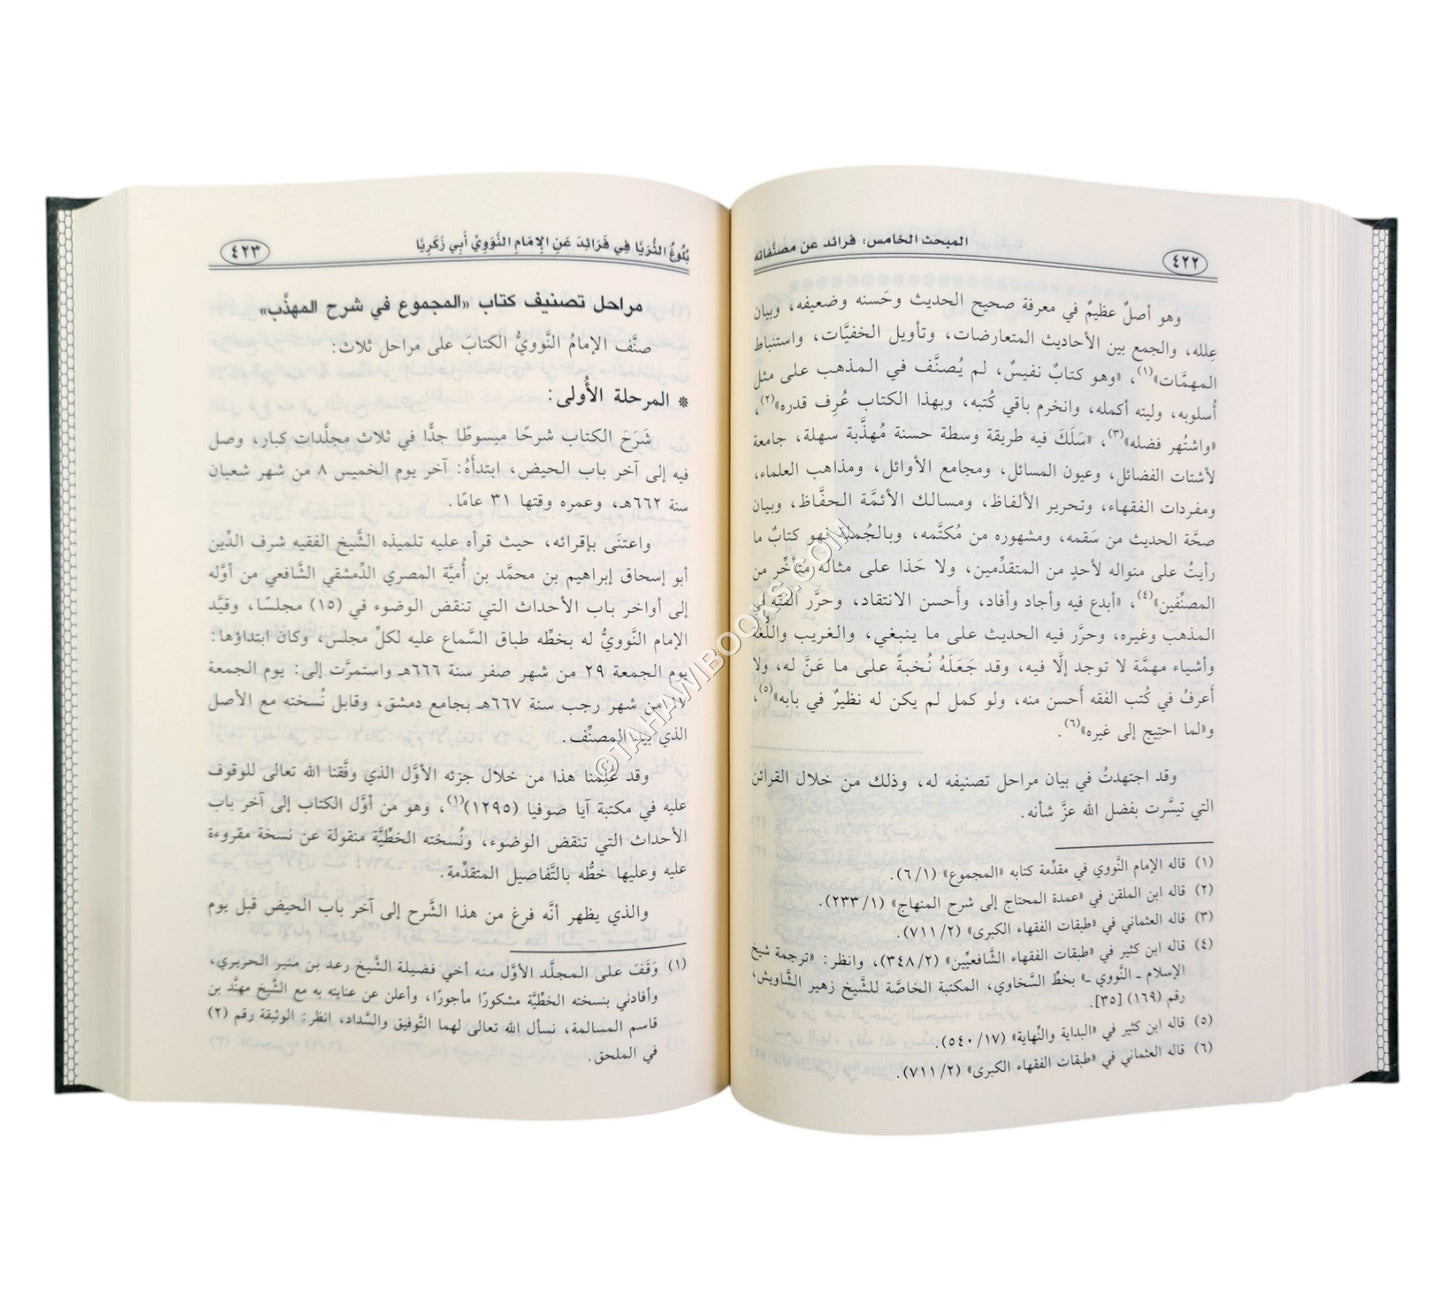 المبحث الخامس: فرائد عن مصنَّفاته
٤٢٢
وهو أصلٌ عظيمٌ في معرفة صحيح الحديث وحَسنه وضعيفه، وبيان
علله، والجمع بين الأحاديث المتعارضات، وتأويل الخفيَّات، واستنباط
المهمَّات»(١)، «وهو كتابٌ نفيسٌ، لم يُصنَّف في المذهب على مثل
أُسلوبه، وليته أكمله، وانخرم باقي كُتبه، وبهذا الكتاب عُرِف قدره»(٢)،
«واشتُهر فضله»(٣)، «سَلَكَ فيه طريقة وسطة حسنة مُهذَّبة سهلة، جامعة
لأشتات الفضائل، وعيون المسائل، ومجامع الأوائل، ومذاهب العلماء،
ومفردات الفقهاء، وتحرير الألفاظ، ومسالك الأئمَّة الحفَّاظ، وبيان
صحَّة الحديث من سَقمه، ومشهوره من مُكتَّمه، وبالجُملة فهو كتابٌ ما
رأيتُ على منواله لأحدٍ من المتقدِّمين، ولا حَذا على مثاله مُتأخِّر من
المصنِّفين»(٤)، «أبدع فيه وأجاد وأفاد، وأَحسن الانتقاد، وحرَّر الفقه في
المذهب وغيره، وحرَّر فيه الحديث على ما ينبغي، والغريب واللُّغة
وأشياء مهمَّة لا توجد إلَّا فيه، وقد جَعَلَهُ نُخبةً على ما عَنَّ له، ولا
أَعرفُ في كُتب الفقه أَحسن منه، ولو كمل لم يكن له نظيرٌ في بابه»(٥)،
و«لما احتِيج إلى غيره»(٦).
وقد اجتهدتُ في بيان مراحل تصنيفه له، وذلك من خلال القرائن
التي تيسَّرت بفضل الله عزَّ شأنه.
(١) قاله الإمام النَّووي في مقدِّمة كتابه «المجموع» (٦/١).
(٢) قاله ابن الملقن في «عمدة المحتاج إلى شرح المنهاج» (٢٣٣/١).
(٣) قاله العثماني في «طبقات الفقهاء الكبرى» (٧١١/٢).
(٤) قاله ابن كثير في «طبقات الفقهاء الشَّافعيِّين» (٣٤٨/٢)، وانظر: «ترجمة شيخ
الإسلام ـ النَّووي ـ» بخطِّ السَّخاوي، المكتبة الخاصَّة للشَّيخ زهير الشَّاويش،
رقم (١٦٩) [٣٥].
(٥) قاله ابن كثير في «البداية والنِّهاية» (٥٤٠/١٧).
(٦) قاله العثماني في «طبقات الفقهاء الكبرى» (٧١١/٢).
بُلُوغُ الثُّرَيَّا فِي فَرَائِدَ عَنِ الإِمَامِ النَّوَوِيِّ أَبِي زَكَرِيَّا
٤٢٣
مراحل تصنيف كتاب «المجموع في شرح المهذَّب»
صنَّف الإمامُ النَّوويُّ الكتابَ على مراحل ثلاث:
* المرحلة الأُولى:
شَرَحَ الكتاب شرحًا مبسوطًا جدًّا في ثلاث مجلَّدات كبار، وصل
فيه إلى آخر باب الحيض، ابتدأهُ: آخر يوم الخميس ٨ من شهر شعبان
سنة ٦٦٢هـ، وعمره وقتها ٣١ عامًا.
واعتنَى بإقرائه، حيث قرأه عليه تلميذه الشَّيخ الفقيه شرف الدِّين
أبو إسحاق إبراهيم بن محمَّد بن أُميَّة المصري الدِّمشقي الشَّافعي من أوَّله
إلى أواخر باب الأحداث التي تنقض الوضوء في (١٥) مجلسًا، وقيَّد
الإمام النَّوويُّ له بخطِّه طباق السَّماع عليه لكلِّ مجلس، وكان ابتداؤها:
يوم الجمعة ٢٩ من شهر صفر سنة ٦٦٦هـ واستمرَّت إلى: يوم الجمعة
من شهر رجب سنة ٦٦٧هـ بجامع دمشق، وقابل نُسخته مع الأصل
الذي بيد المصنِّف.
وقد عَلِمنا هذا من خلال جزئه الأوَّل الذي وفَّقنا الله تعالى للوقوف
عليه في مكتبة آيا صوفيا (١٢٩٥)(١)، وهو من أوَّل الكتاب إلى آخر باب
الأحداث التي تنقض الوضوء، ونُسخته الخطِّيَّة منقولة عن نسخة مقروءة
عليه وعليها خطُّه بالتَّفاصيل المتقدِّمة.
والذي يظهر أنَّه فرغ من هذا الشَّرح إلى آخر باب الحيض قبل يوم
(١) وَقَفَ على المجلَّد الأوَّل منه أخي فضيلة الشَّيخ رعد بن منير الحريري،
وأفادني بنسخته الخطِّيَّة مشكورًا مأجورًا، وأعلن عن عنايته به مع الشَّيخ مهنَّد بن
قاسم المسالمة، نسأل الله تعالى لهما التَّوفيق والسَّداد، انظر: الوثيقة رقم (٢)
في الملحق.
©TAHAWIBOOKS.COM